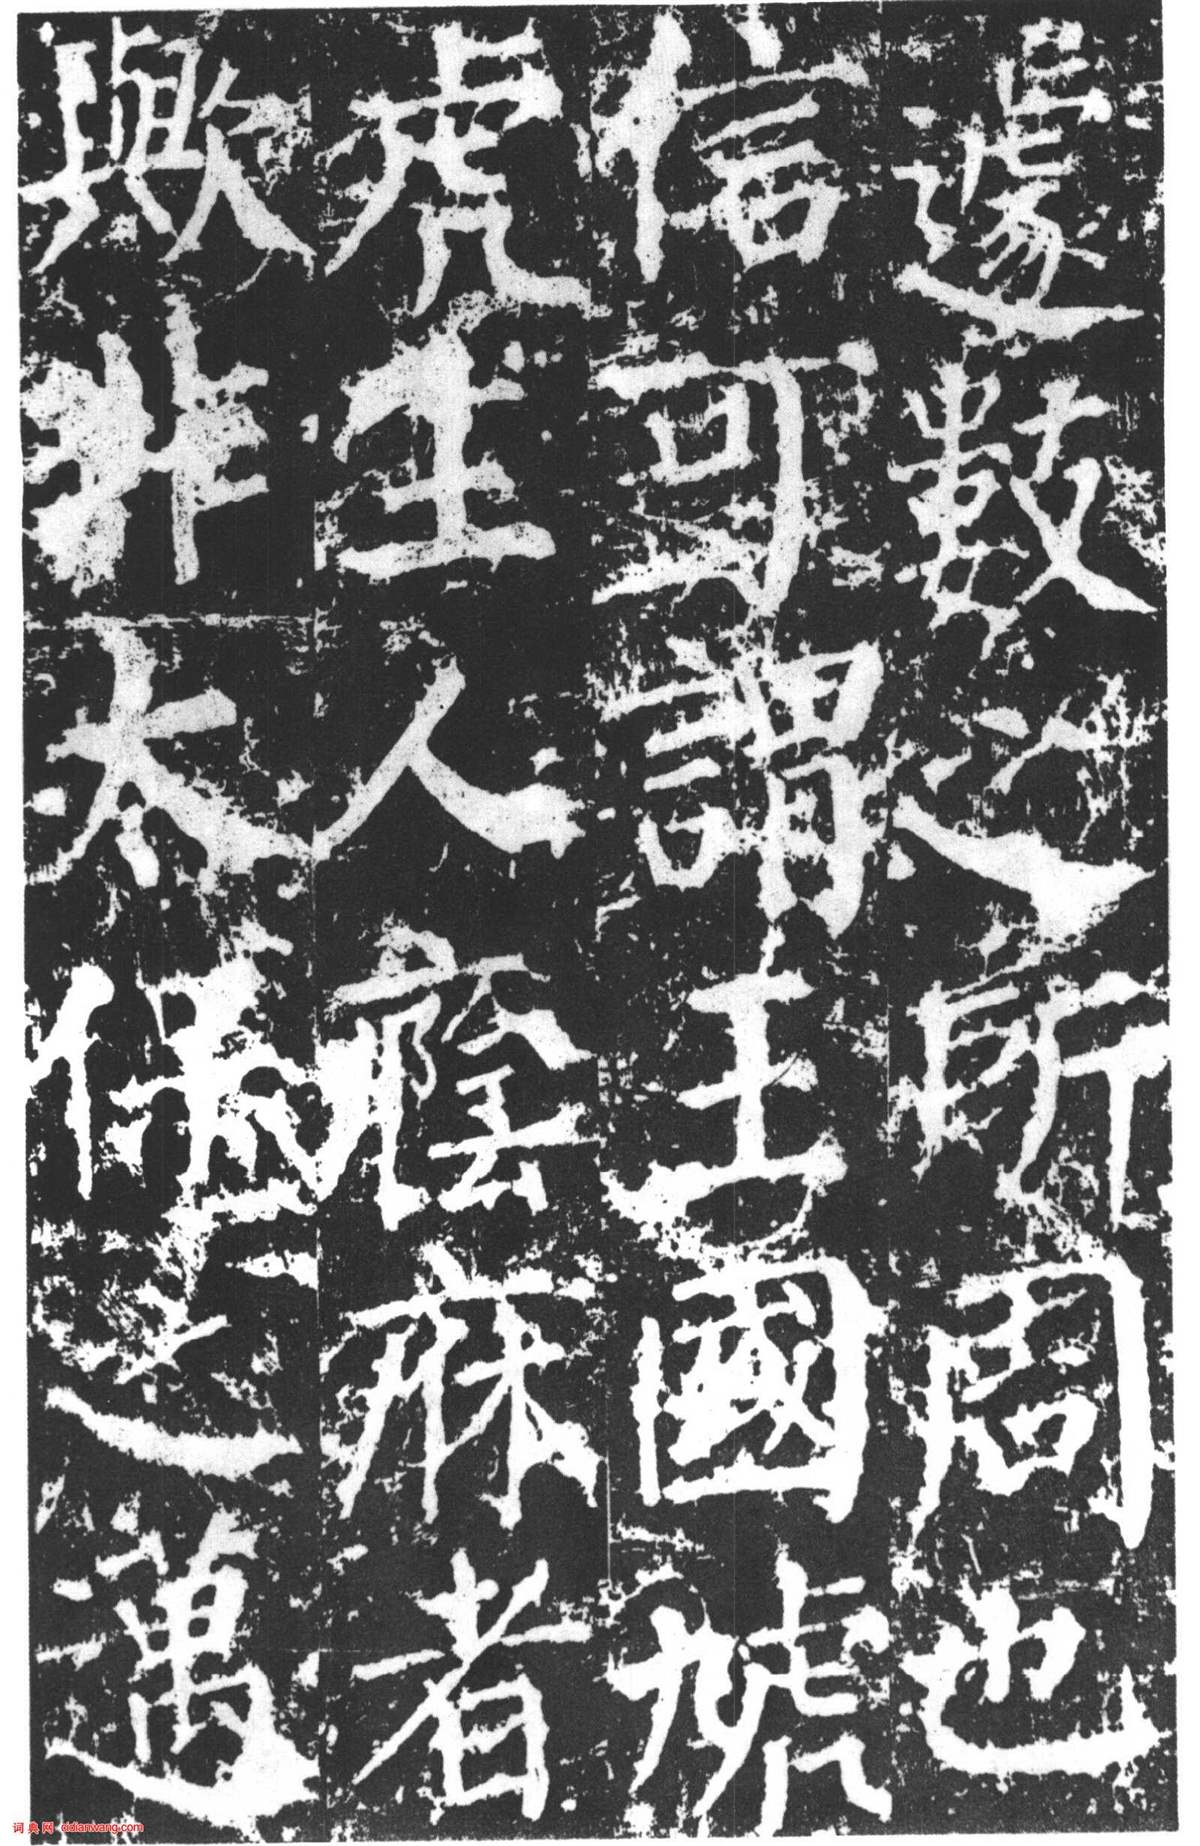 遽數之所周也
信可謂王國虓
虎生人廕庥者
歟非太保之邁
词典网 cidianwang.com